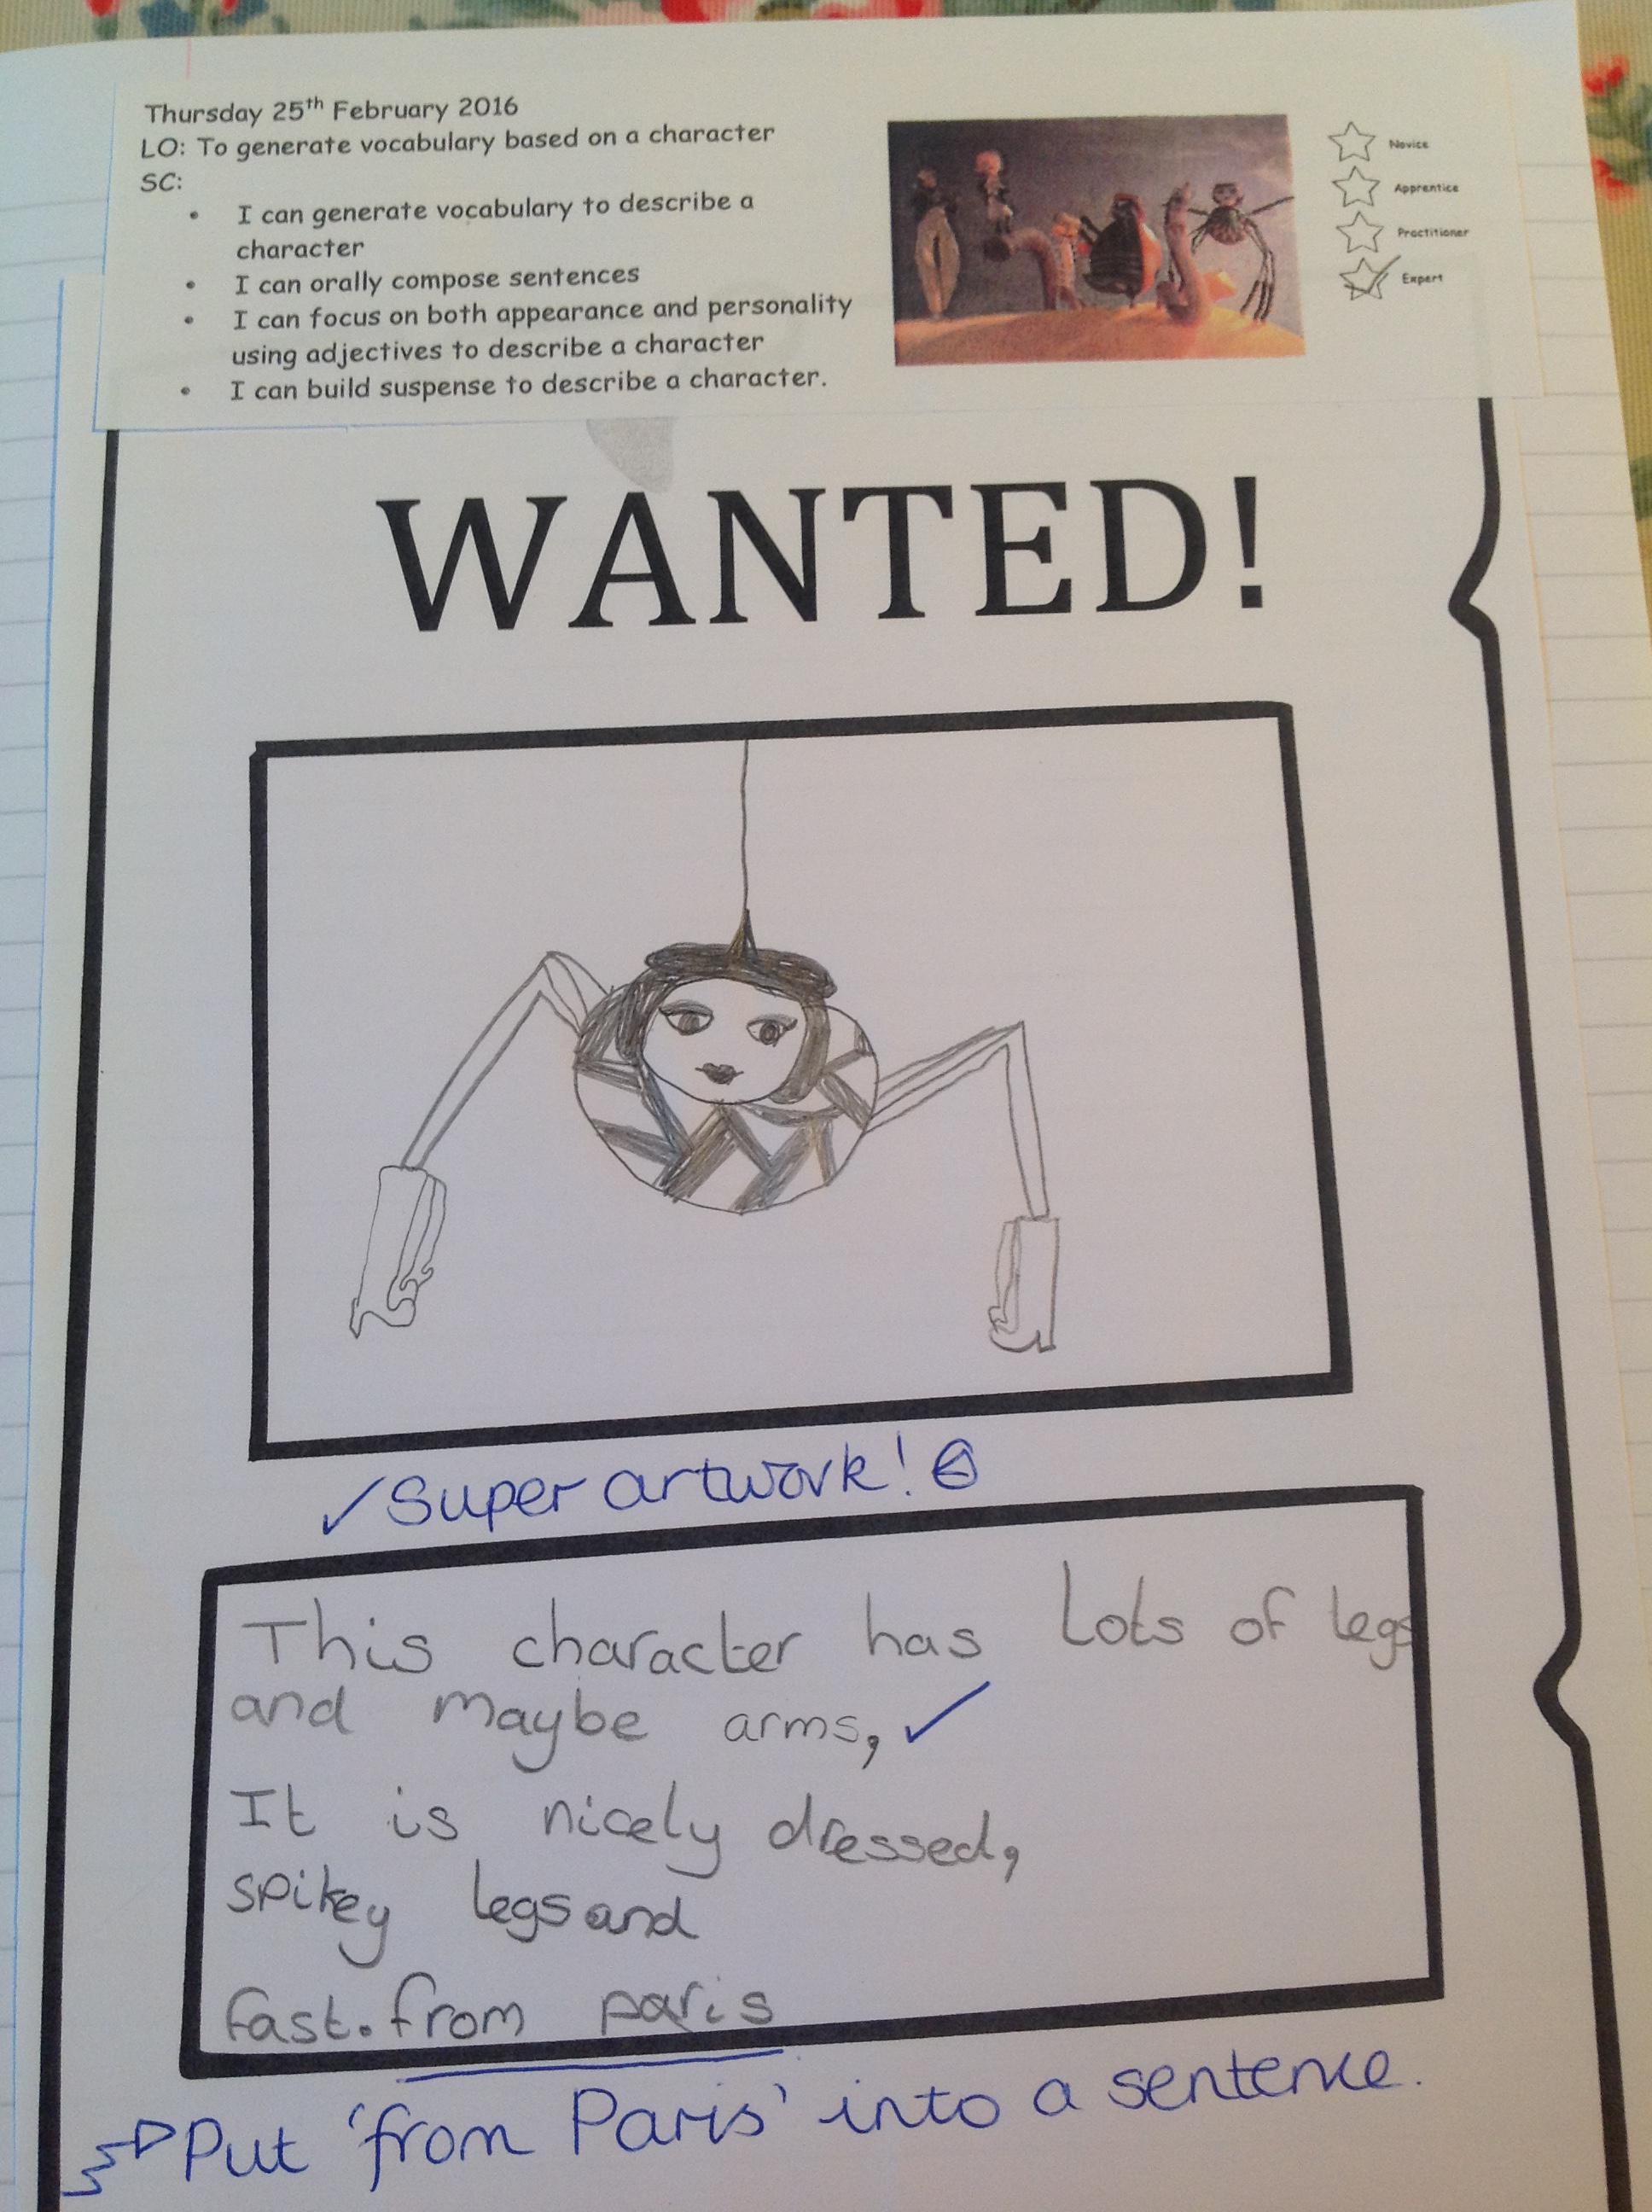 Thursday 25th February 2016
LO: To generate vocabulary based on a character
SC:
• I can generate vocabulary to describe a
character
• I can orally compose sentences
• I can focus on both appearance and personality
using adjectives to describe a character
• I can build suspense to describe a character.
Novice
Apprentice
Practitioner
Expert
WANTED!
✓ Super artwork!
This character has Lots of legs
and maybe arms, ✓
It is nicely dressed,
spikey legs and
fast. from paris
Put 'from Paris' into a sentence.